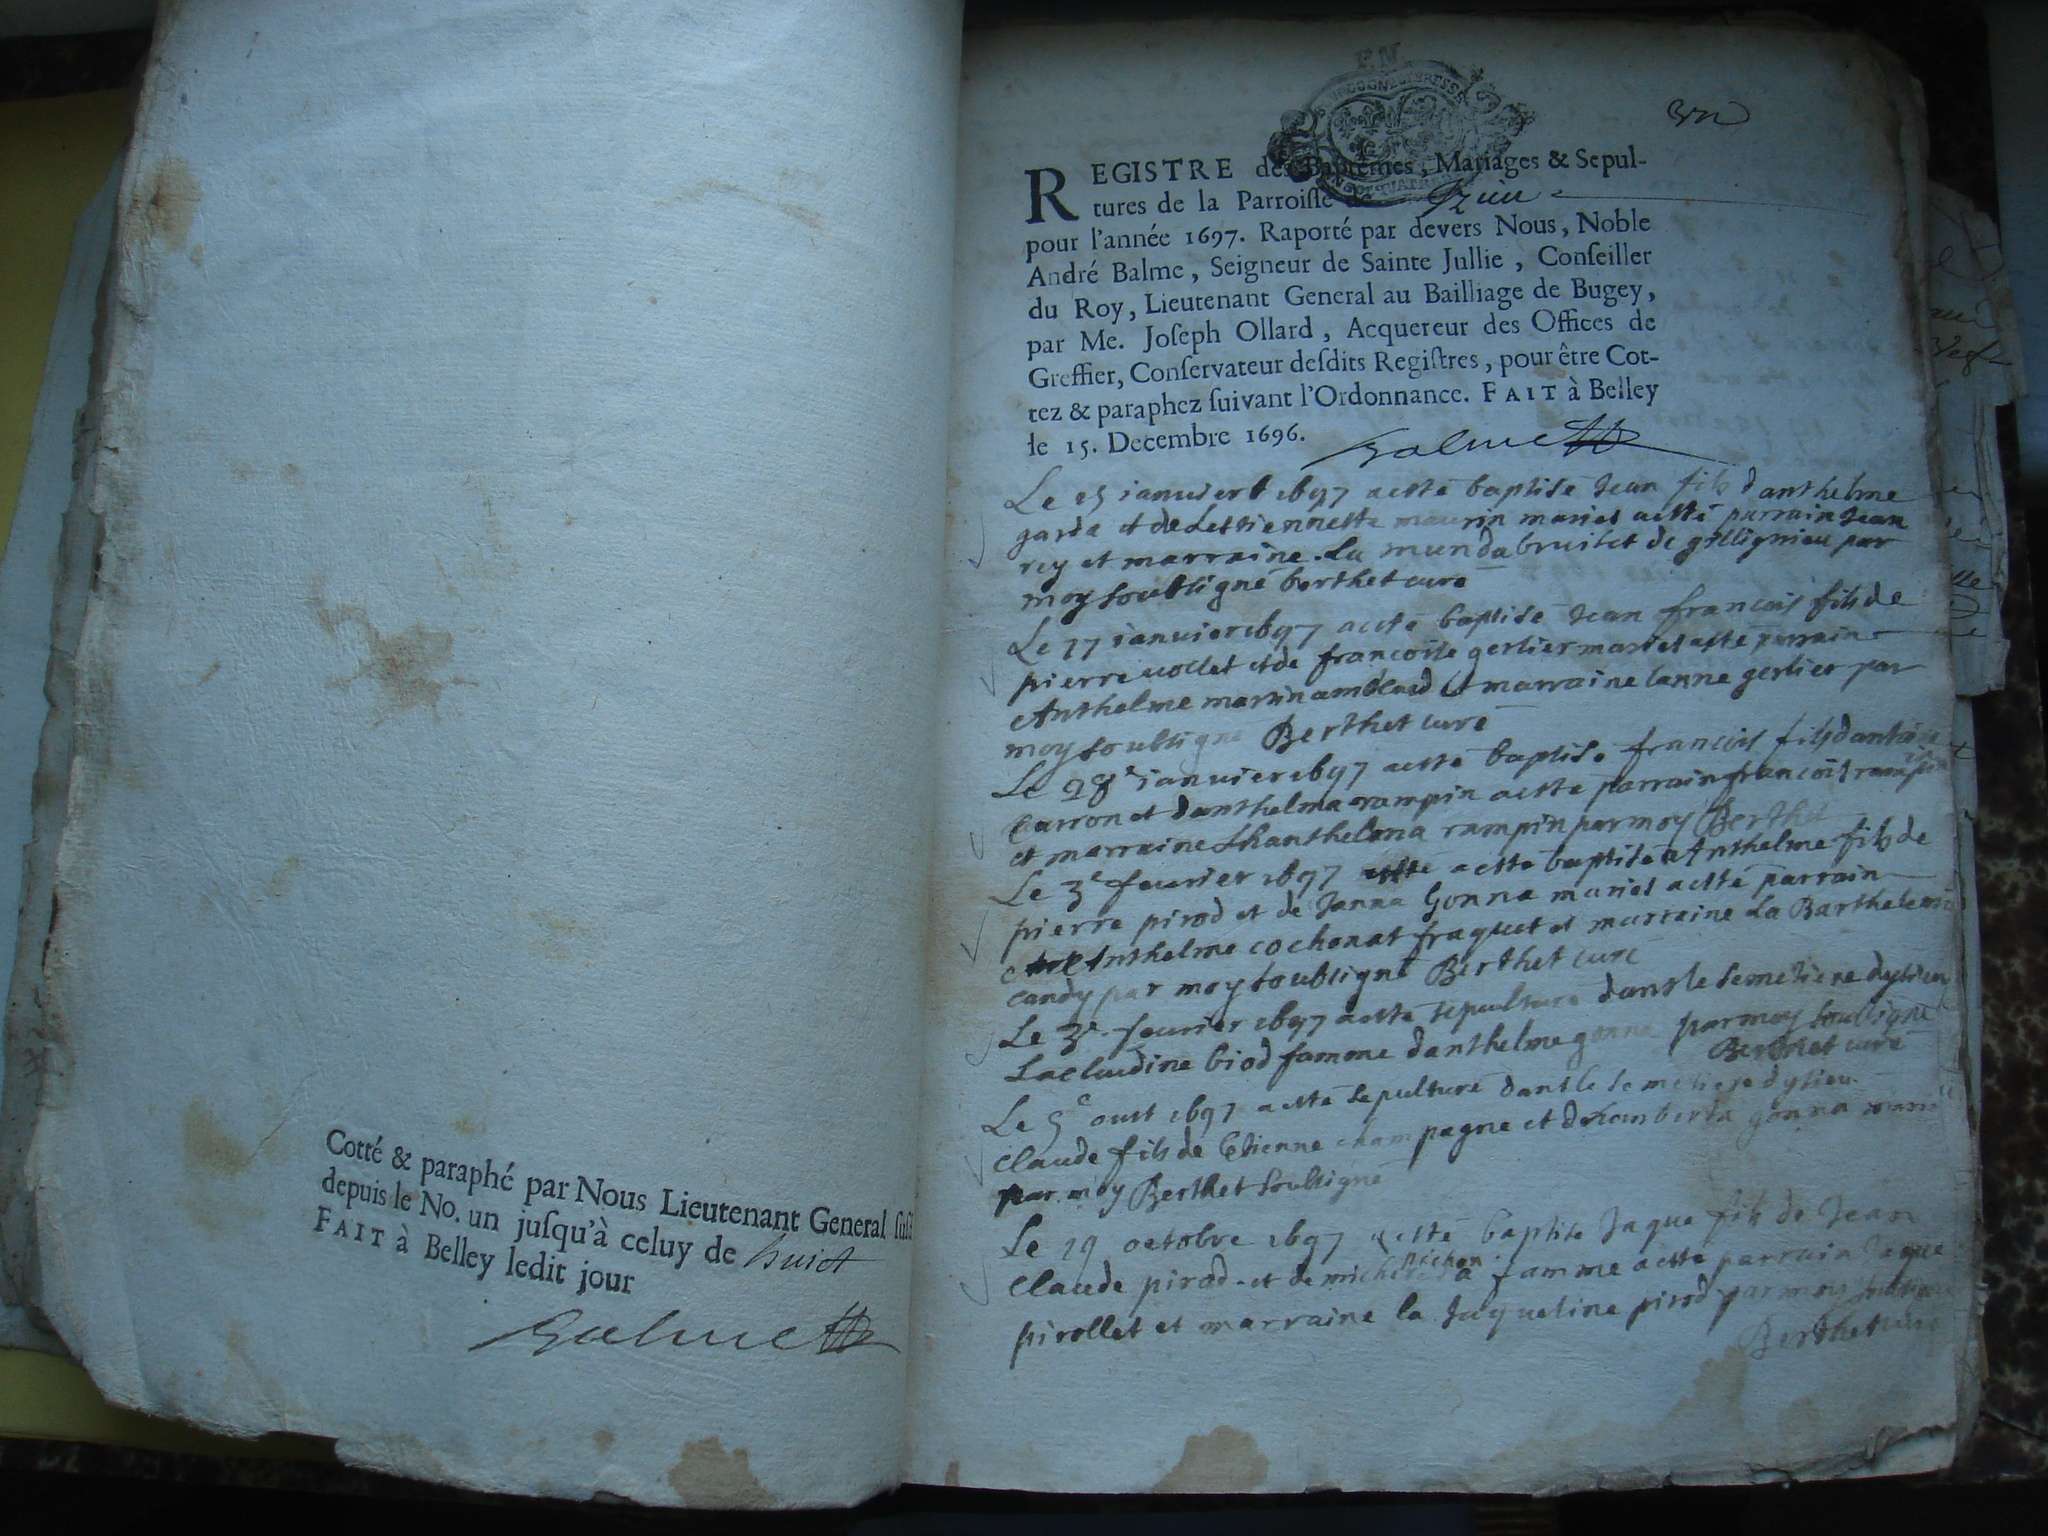 Cotté & paraphé par Nous Lieutenant General ſuſ
depuis le No. un juſqu'à celuy de huict
FAIT à Belley ledit jour
Balme
F.M.
REGISTRE des Baptêmes, Mariages & Sepul-
tures de la Parroiſſe de Izieu
pour l'année 1697. Raporté par devers Nous, Noble
André Balme, Seigneur de Sainte Jullie, Conſeiller
du Roy, Lieutenant General au Bailliage de Bugey,
par Me. Joſeph Ollard, Acquereur des Offices de
Greffier, Conſervateur deſdits Regiſtres, pour être Cot-
tez & paraphez ſuivant l'Ordonnance. FAIT à Belley
le 15. Decembre 1696.
Balme
Le 15 ianvier 1697 a esté baptisé Jean fils d anthelme
garda et de Lestiennette maurin maries a esté parrain Jean
rey et marraine La munda bruitet de gillignieu par
moy soubsigné berthet curé
Le 17 ianvier 1697 a esté baptisé Jean francois fils de
pierre vollet et de francoise gerlier maries a esté parrain
Anthelme martin et marraine lanne gerlier par
moy soubsigné Berthet curé
Le 28e ianvier 1697 a esté baptisé francois fils dantoine
Carron et danthelma rampin a esté parrain francois rampin
et marraine Lhanthelma rampin par moy Berthet
Le 3e feurier 1697 a esté baptisé Anthelme fils de
pierre pirod et de Janna Gonna maries a esté parrain
Anthelme cochonat fraquet et marraine La Barthelemie
candy par moy soubsigné Berthet curé
Le 3e feurier 1697 a esté sepulturé dans le semetiere dysieu
La claudine biod famme danthelme gonna par moy soubsigné
Berthet curé
Le 5e oust 1697 a esté sepulturé dans le semetiere dysieu
Claude fils de Etienne champagne et de Lamberta gonna
par moy Berthet soubsigné
Le 19 octobre 1697 a esté baptisé Jaque fils de Jean
Claude pirod et de michon sa famme a esté parrain Jaque
pirollet et marraine la Jaqueline pirod par moy
Berthet curé